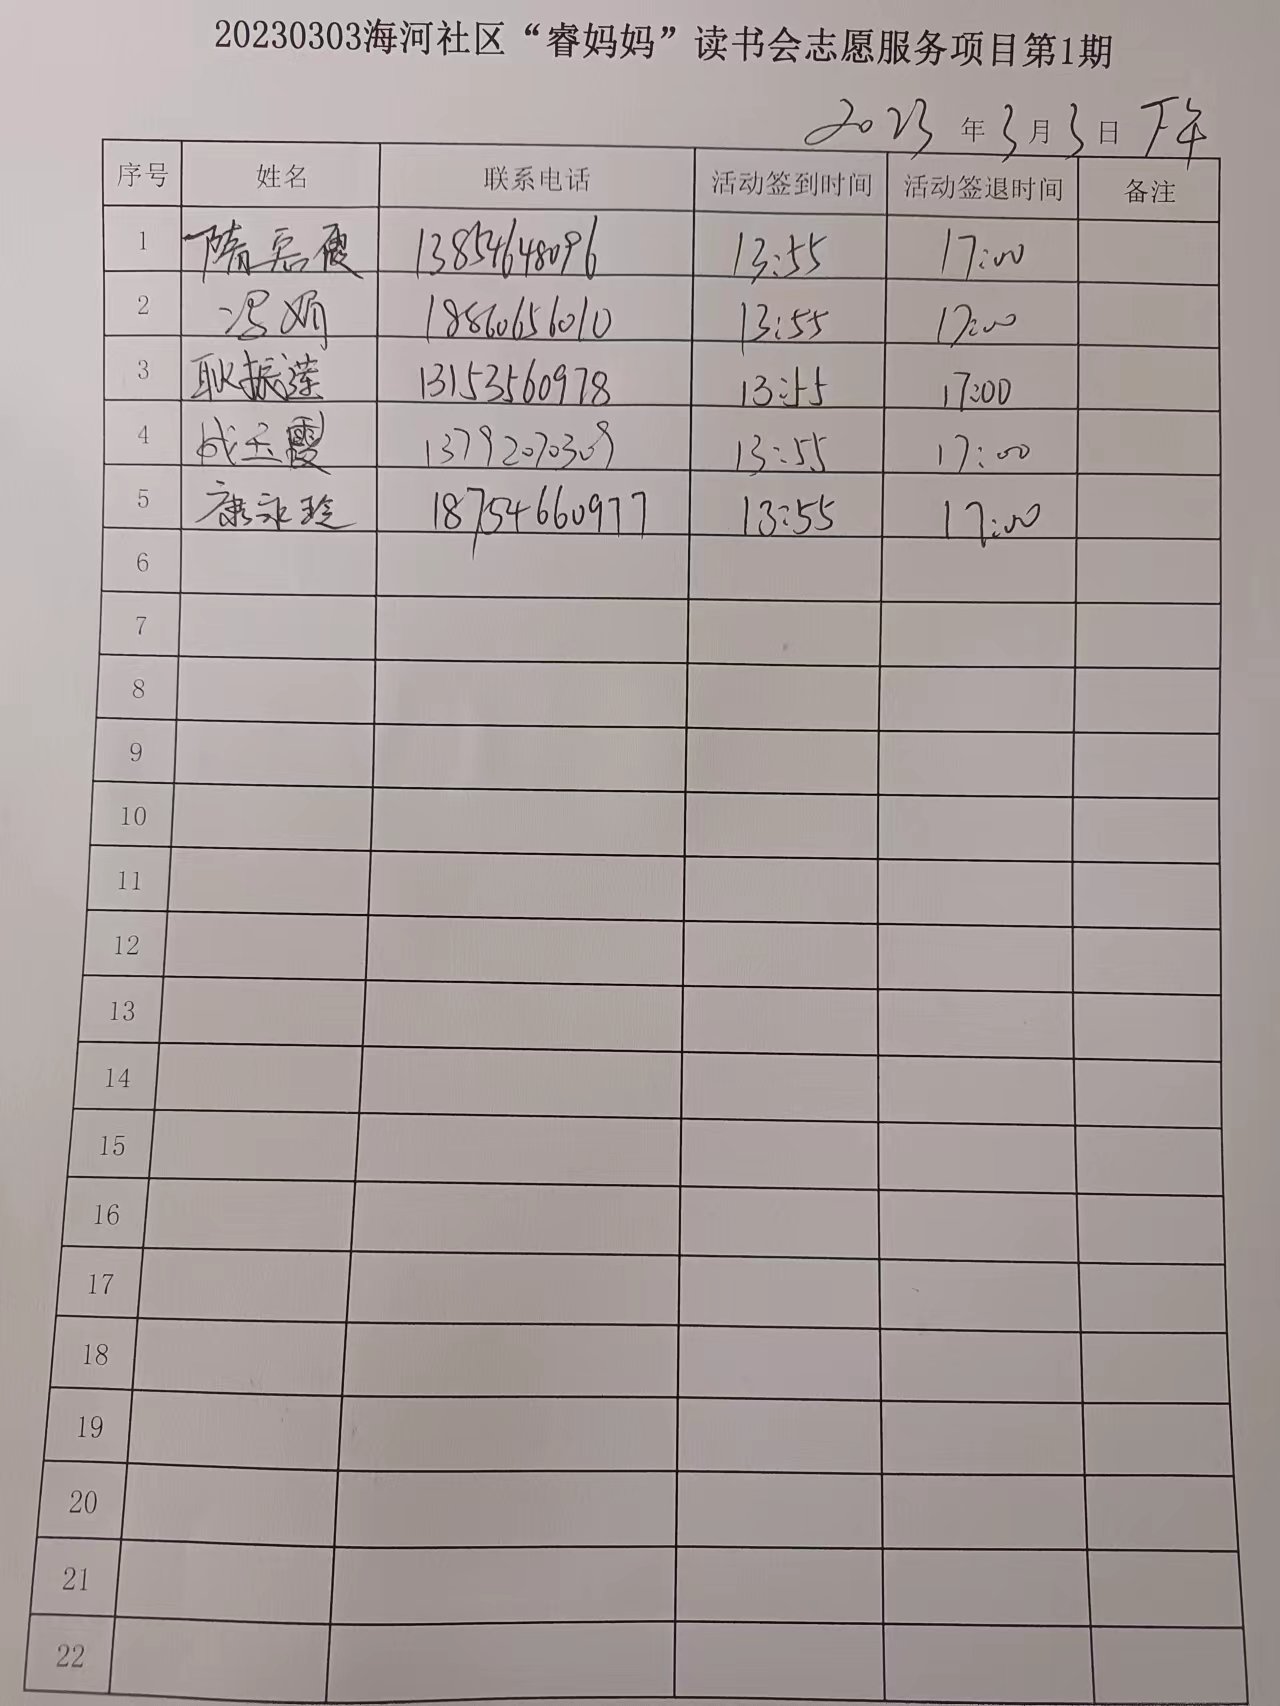 20230303海河社区“睿妈妈”读书会志愿服务项目第1期
2023年3月3日 下午
序号 姓名 联系电话 活动签到时间 活动签退时间 备注
1 隋 霞 13854648096 13:55 17:00
2 冯娟 18860656010 13:55 17:00
3 耿振莲 13153560978 13:55 17:00
4 成玉霞 13792070309 13:55 17:00
5 康永玲 18754660977 13:55 17:00
6
7
8
9
10
11
12
13
14
15
16
17
18
19
20
21
22